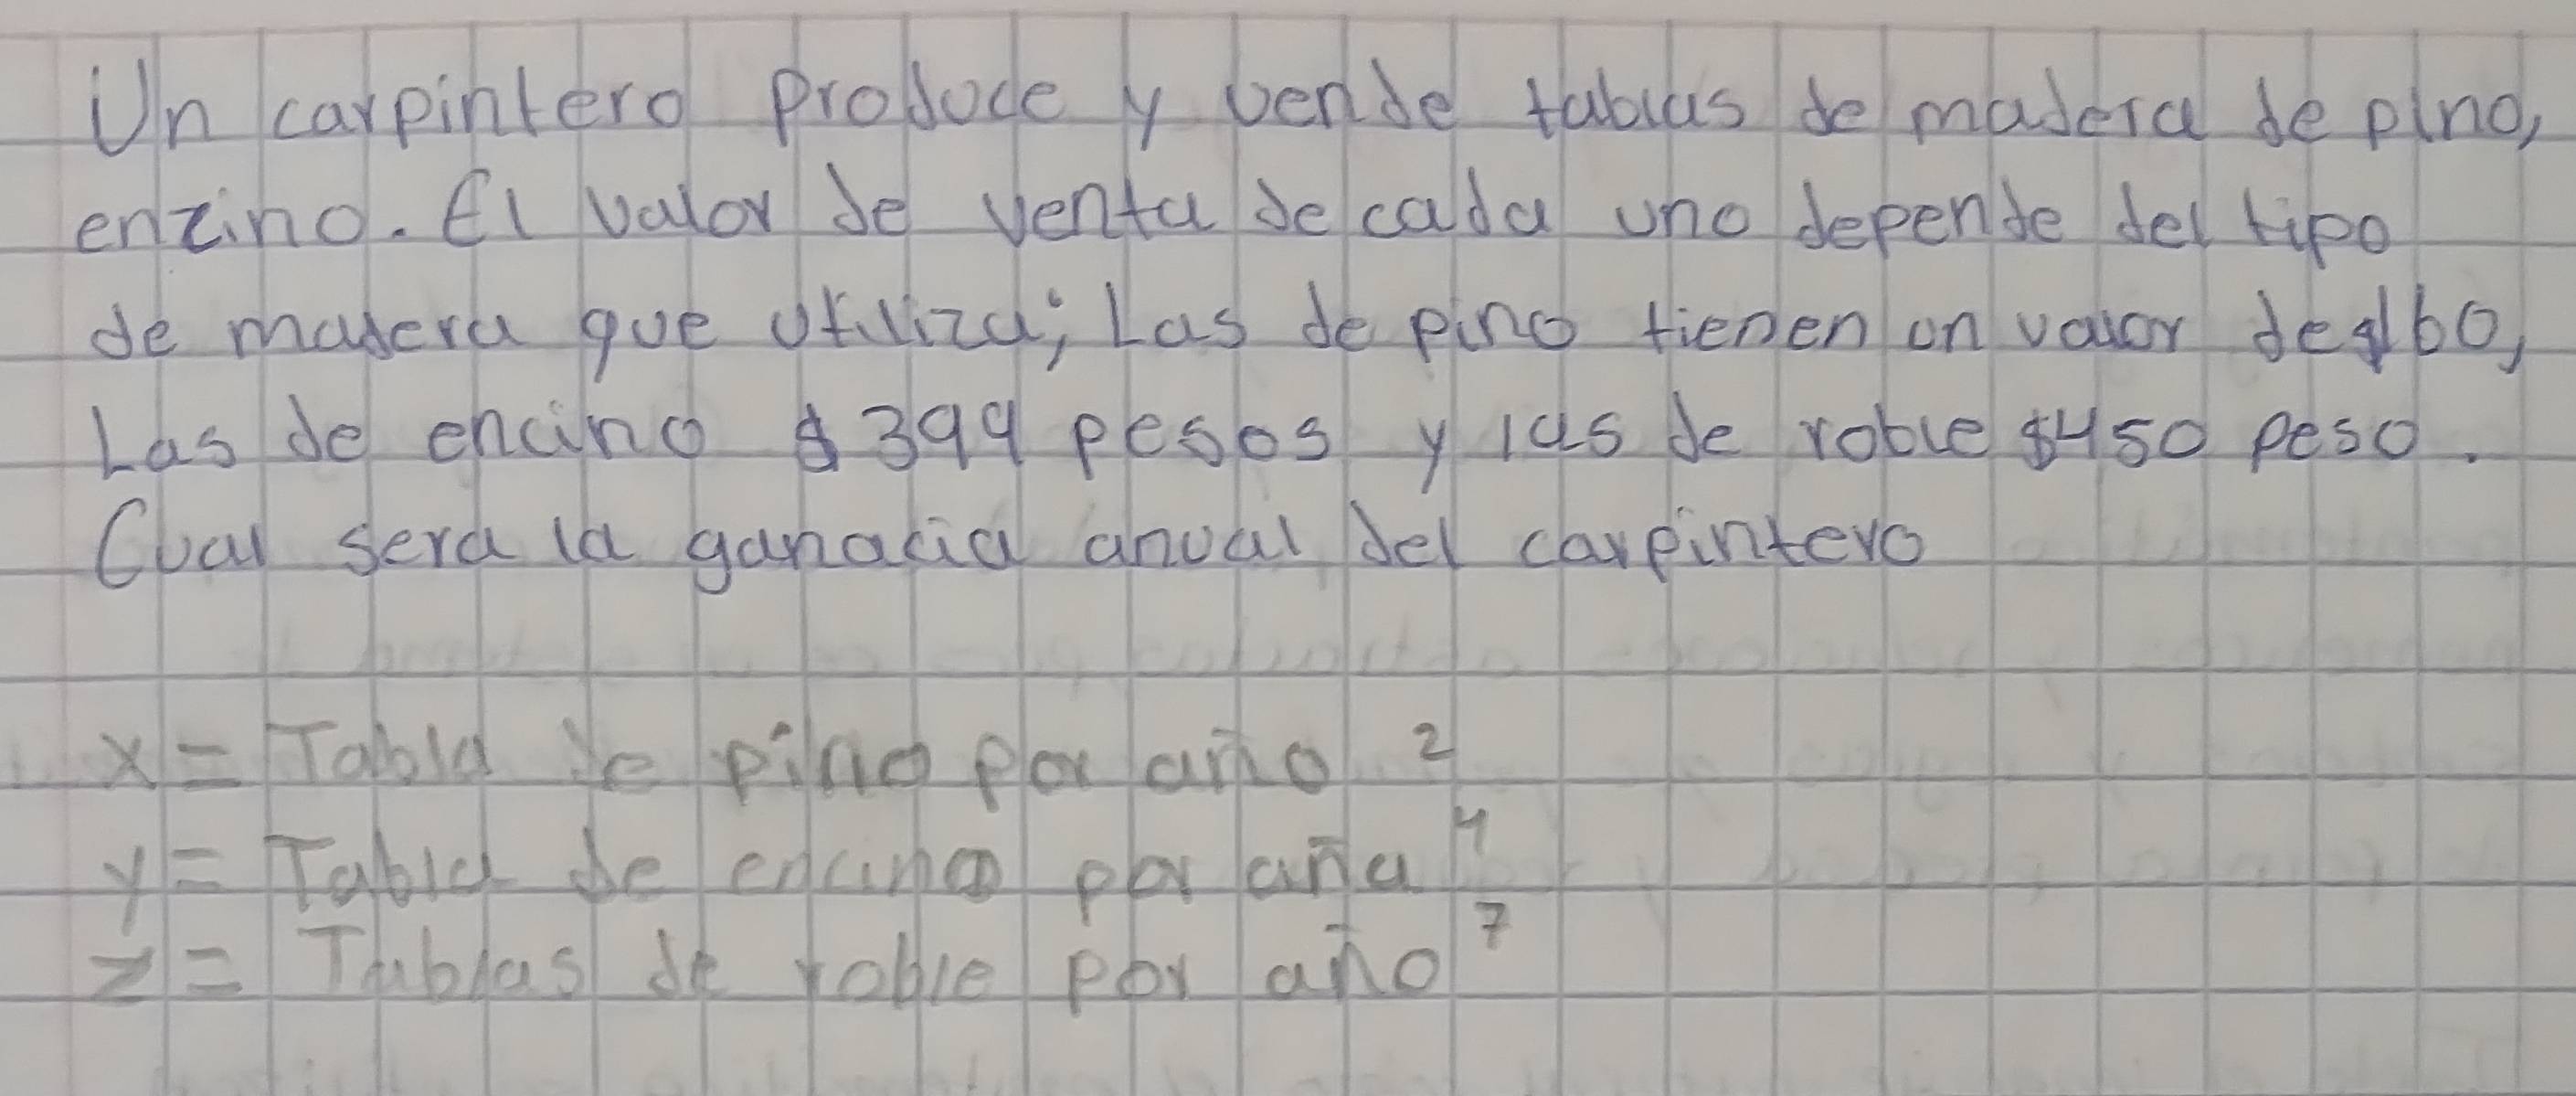 Un carpintero produce y vende tablas de madera de pino,
enzino. El valor de venta de cada uno depende del tipo
de madera que utiliza; Las de pino tienen un valor de $160,
Las de encino $399 pesos y las de roble $450 peso.
Cual sera la ganacia anual del carpintero
x= Tabla de pino por año 2
y= Tabla de encino por aña 4
z= Tablas de roble por año 7